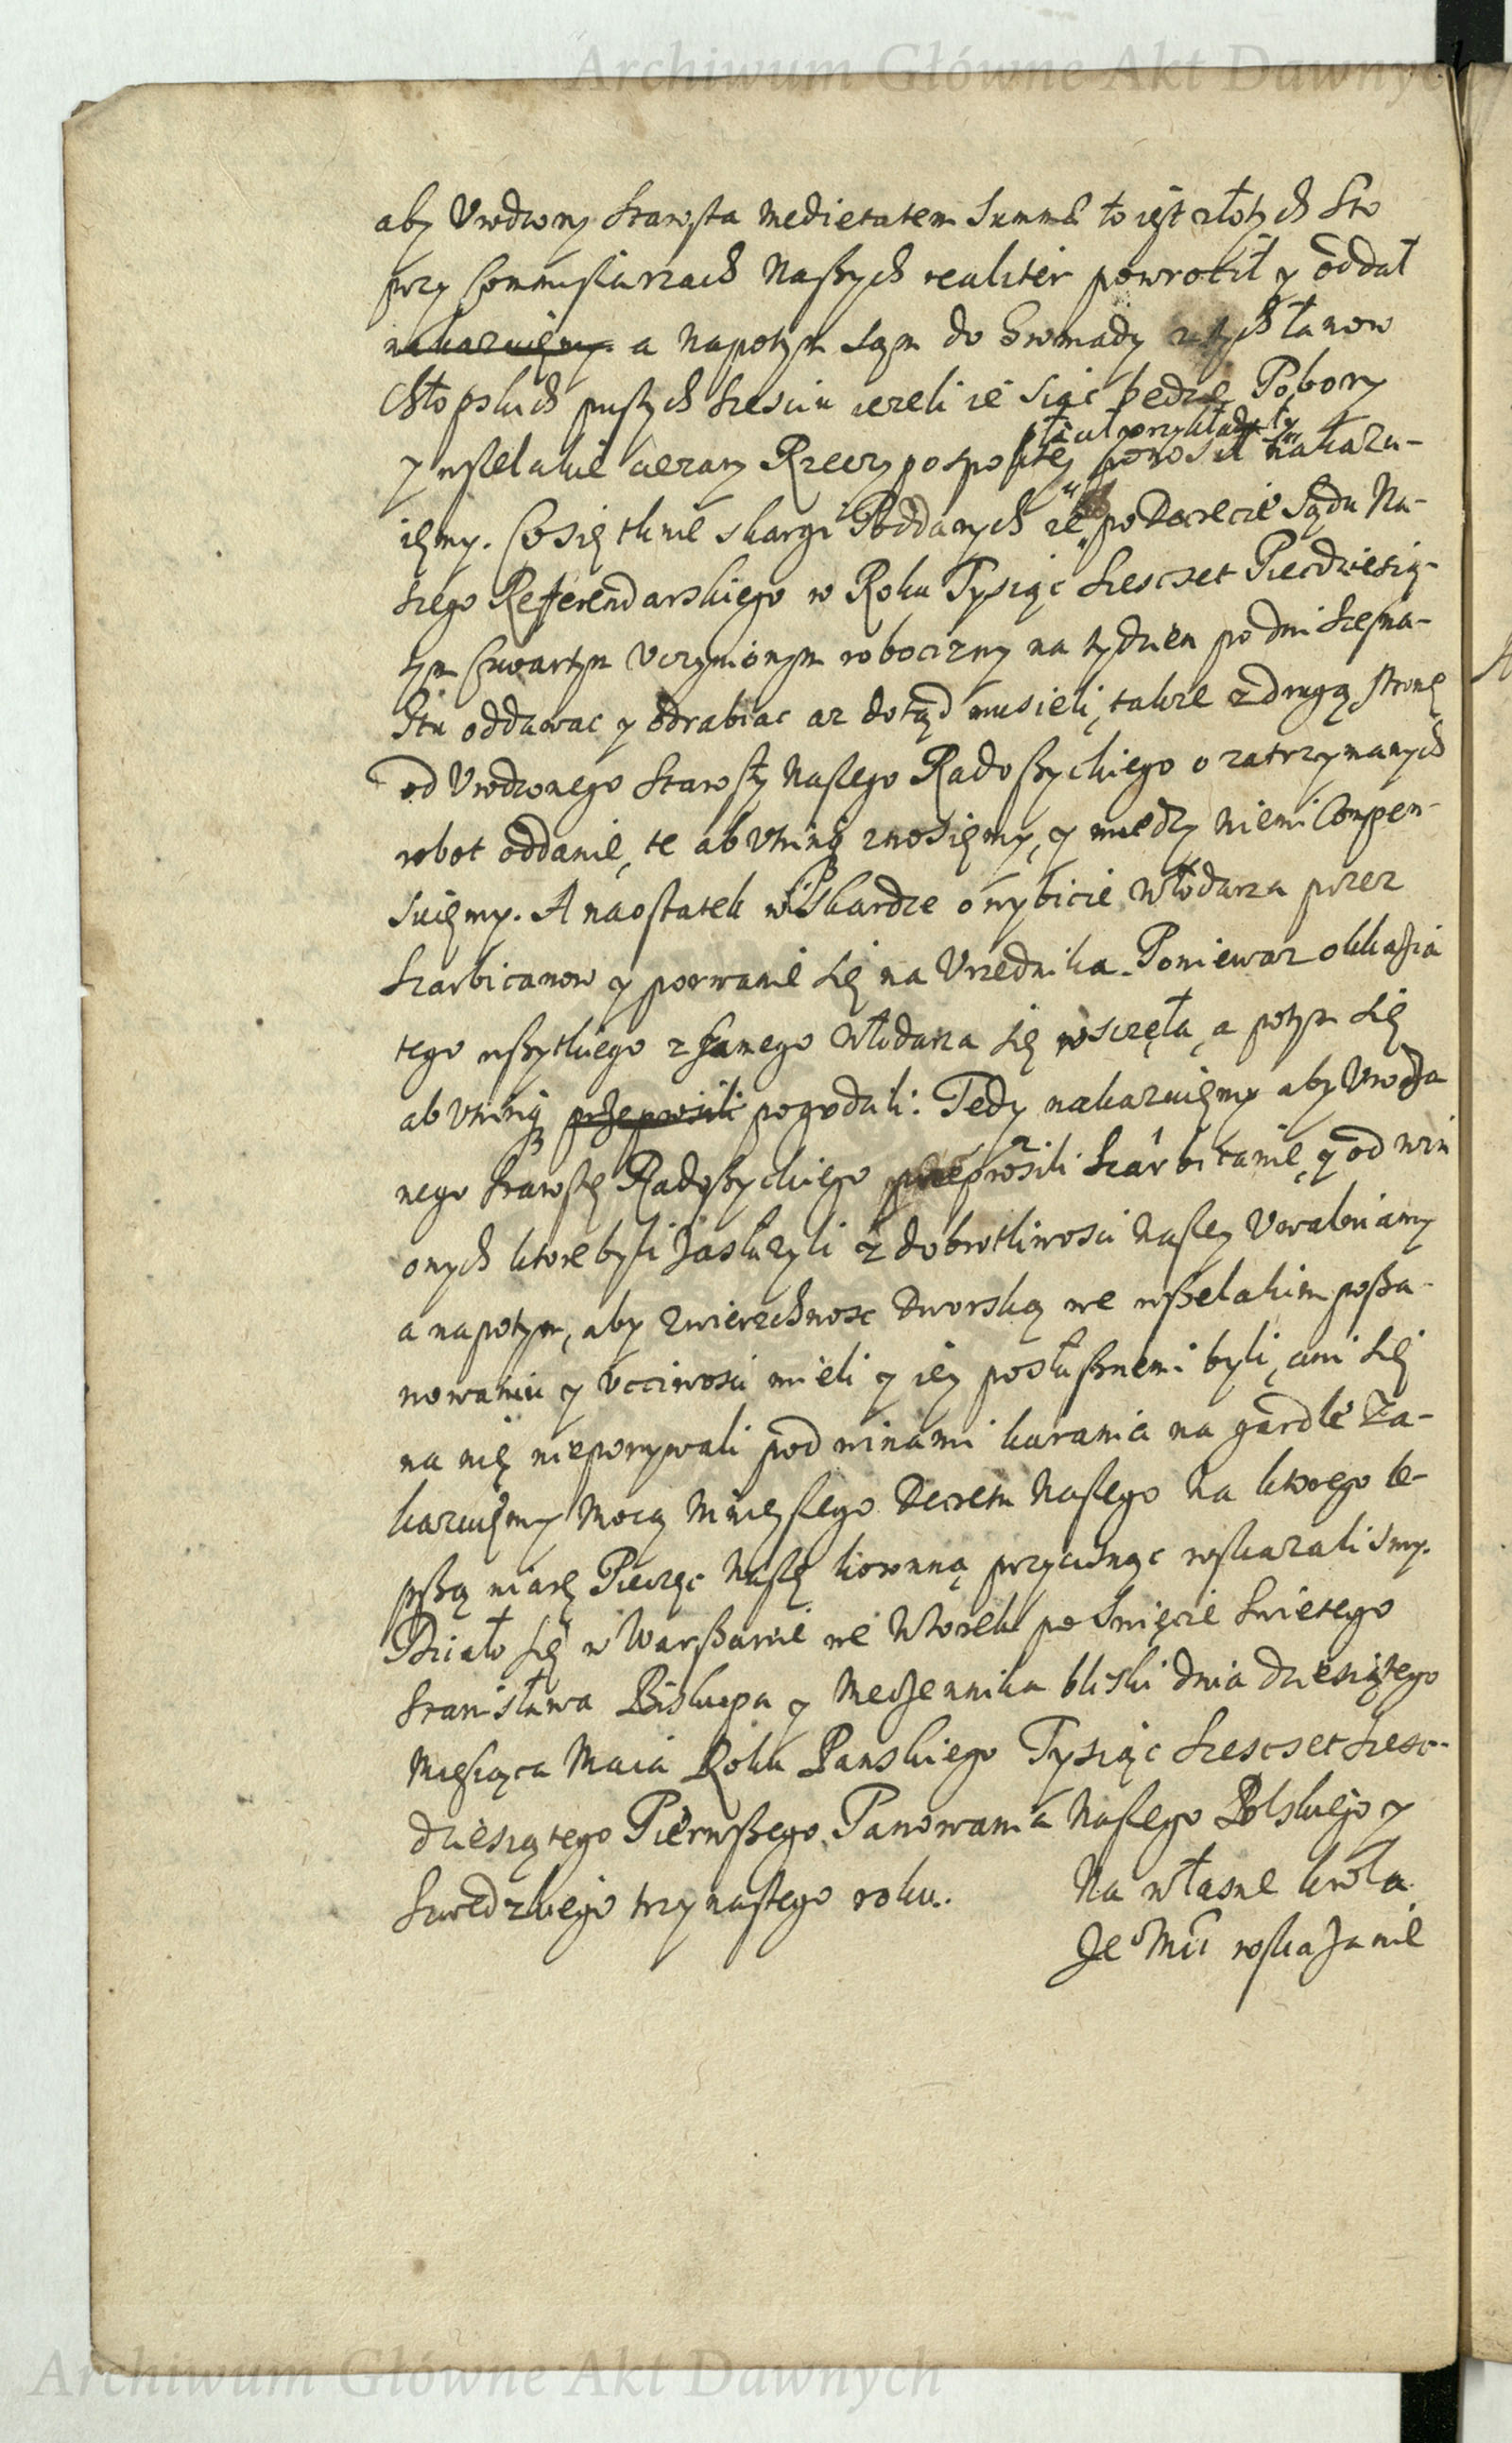 Archiwum Główne Akt Dawnych
aby Vrodzony Starosta medietatem Summæ to iest złotych Sto
przy Commissarzach Naszych realiter powrocił y oddał
nakazuięmy a napotym sąm do Gromady z tych łanow
Chłopskich pustych sześciu ieżeli ie siąc będzie Pobory
płacił przykładał y
y wszelakie cięzary Rzeczypospolitey ponosił nakazu-
ięmy. Co się tknie skargi Poddanych że po Decrecie Sądu Na-
szego Referendarskiego w Roku Tysiąc Szescset Piecdziesią-
tym Czwartym Vczynionym robocizny na tydzien po dni szesna-
stu oddawac y odrabiac aż dotąd musieli, także z drugą stronę
od Vrodzonego Starosty Naszego Radoszyckiego o zatrzymanych
robot oddanie, te ab vtrinq znosięmy, y między niemi Compen-
suięmy. A naostatek w Skardze o wybicie Włodarza przez
Szarbicanow y porwanie się na Vrzednika. Poniewaz okkazia
tego wszytkiego z samego Włodarza się wszczęła, a potym się
ab vtrinq przeprosili pogodzili: Tedy nakazuięmy aby Vrodzo
3 2 1
nego Starostę Radoszyckiego przeprosili Szarbicanie, y od win
onych ktore byli zasłuzyli z dobrotliwosci Naszey Vwalniamy
a napotym, aby zwierzchnosc dworską we wszelakim posza-
nowaniu y vcciwosci mieli y iey posłusznemi byli, ani się
na nię nieporywali pod winami karania na gardle za-
kazuięmy Mocą Ninieyszego Decretu Naszego Na ktorego le-
pszą wiarę Pieczęc Naszę koronną przycisnąc roskazalismy.
Działo się w Warszawie we Wtorek po Swięcie Swietego
Stanisława Biskupa y Meczennika bliski dnia dziesiątego
Miesiąca Maia Roku Panskiego Tysiąc Szescset Szesc-
dziesiątego Pierwszego Panowania Naszego Polskiego y
Szwedzkiego trzynastego roku. Na własne krola
Je° Mci roskazanie
Archiwum Główne Akt Dawnych